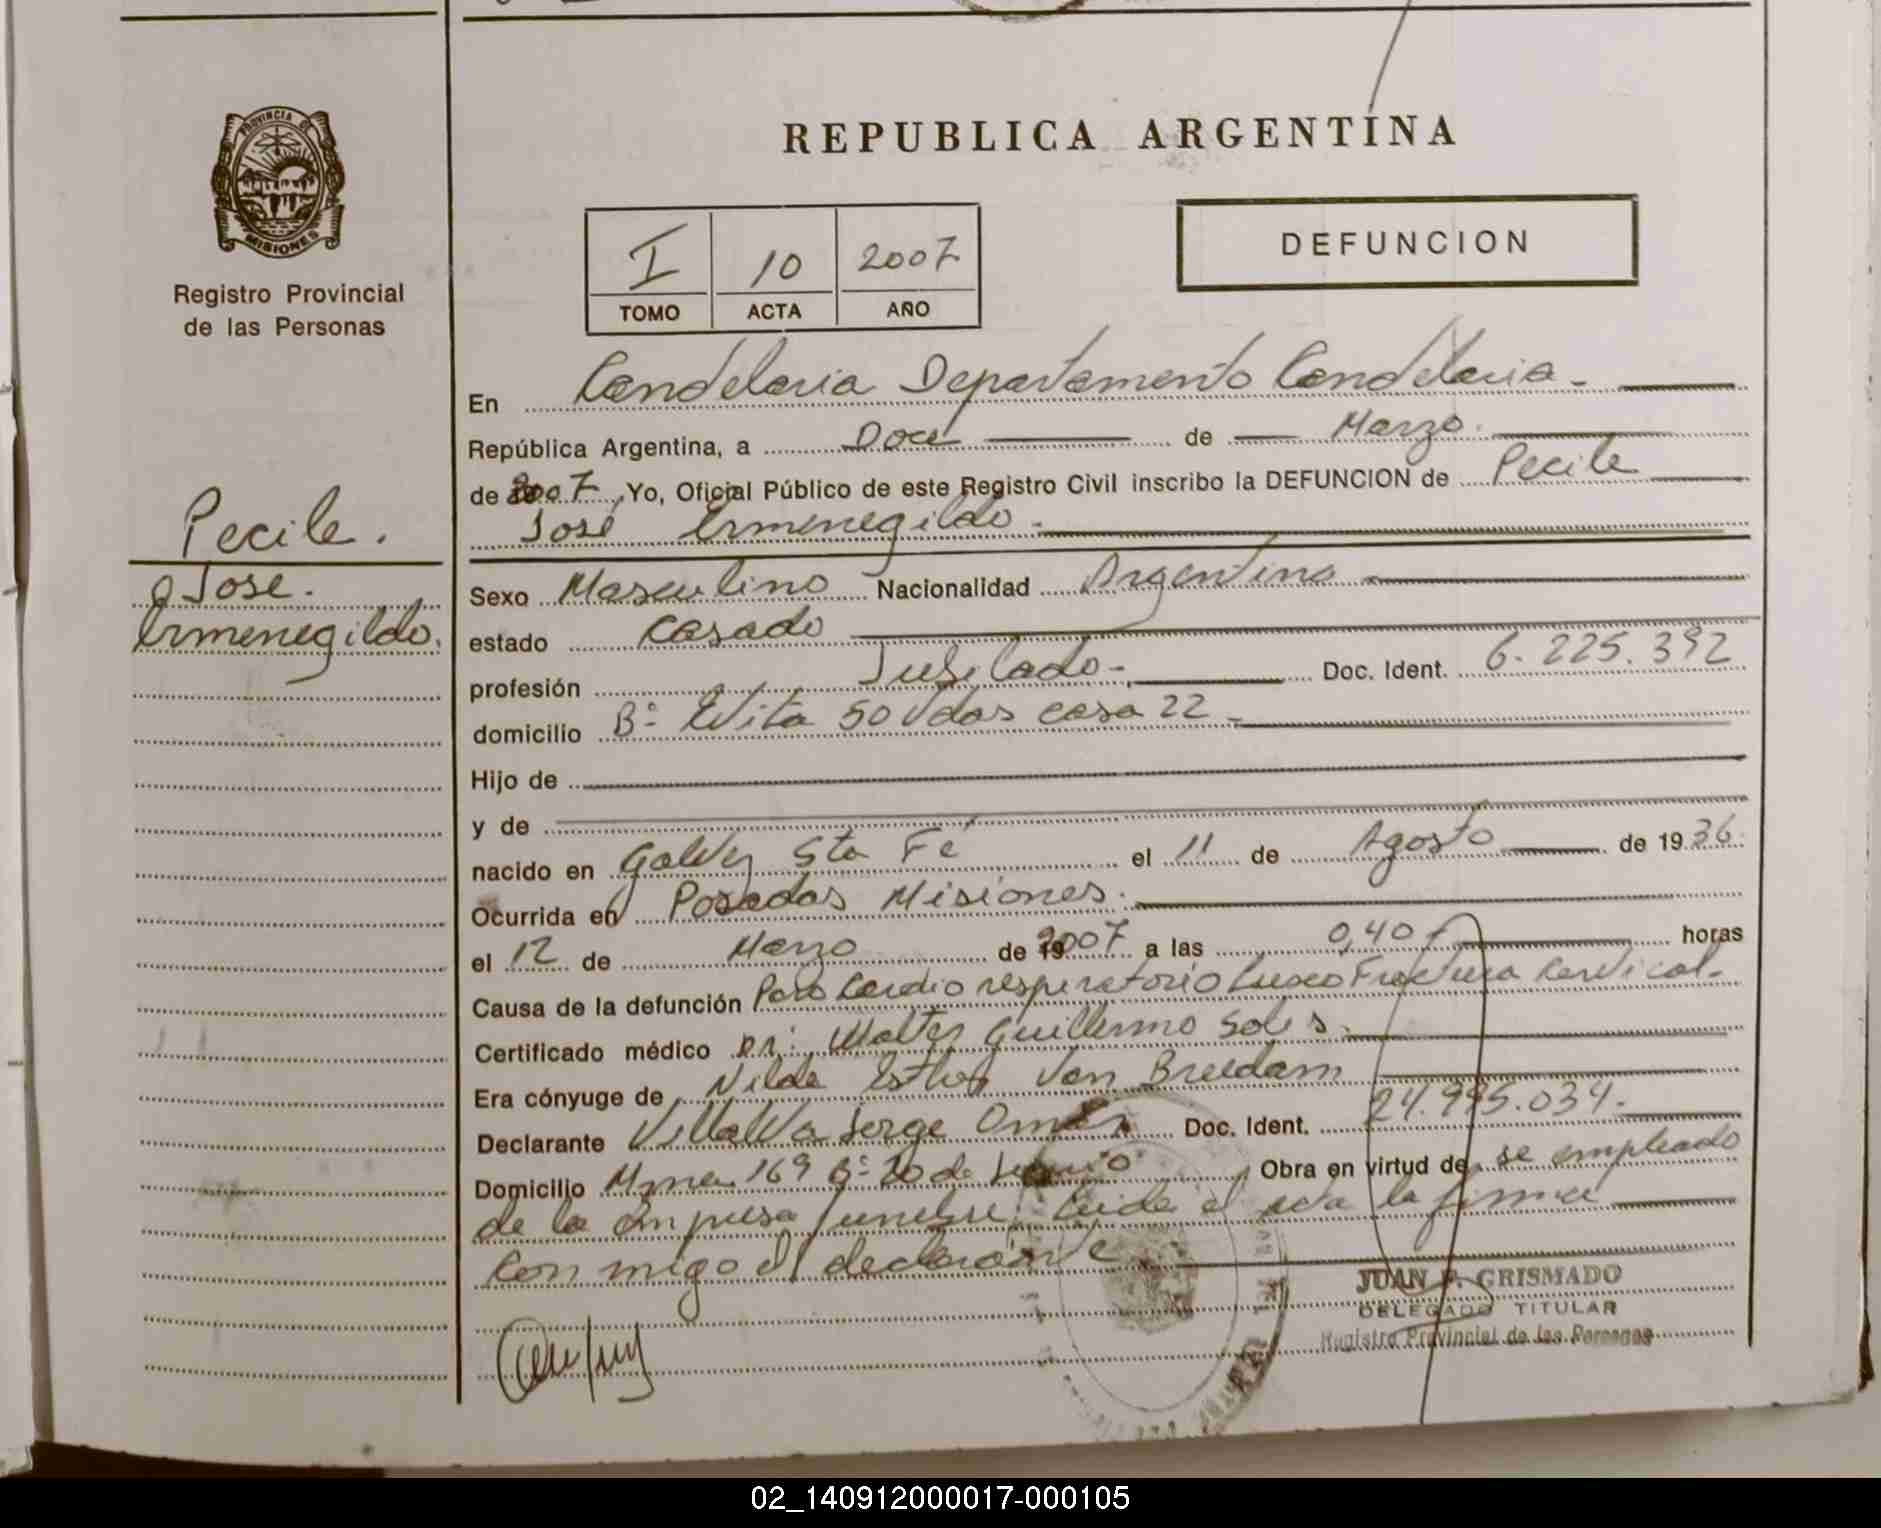 PROVINCIA DE
MISIONES
Registro Provincial
de las Personas
Pecile.
Jose.
Ermenegildo.
REPUBLICA ARGENTINA
I 10 2007
TOMO ACTA AÑO
DEFUNCION
En Candelaria Departamento Candelaria.-
República Argentina, a Doce de Marzo.
de 2007 Yo, Oficial Público de este Registro Civil inscribo la DEFUNCION de Pecile
José Ermenegildo.-
Sexo Masculino Nacionalidad Argentino
estado casado
profesión Jubilado.- Doc. Ident. 6.225.392
domicilio B° Evita 50 Vdas casa 22
Hijo de
y de
nacido en Galvez Sta Fé el 11 de Agosto de 1936.
Ocurrida en Posadas Misiones.
el 12 de Marzo de 2007 a las 0,40 horas
Causa de la defunción Paro Cardio respiratorio Fractura Cervical.
Certificado médico Dr: Walter Guillermo Solis.
Era cónyuge de Nilda Esther Van Breedam
Declarante Villalva Jorge Omar Doc. Ident. 24.995.034.
Domicilio 169 B° 20 de Junio Obra en virtud de se empleado
de la Empresa funebre, Leida el acta la firma
con migo el declarante
JUAN P. GRISMADO
DELEGADO TITULAR
Registro Provincial de las Personas
02_140912000017-000105